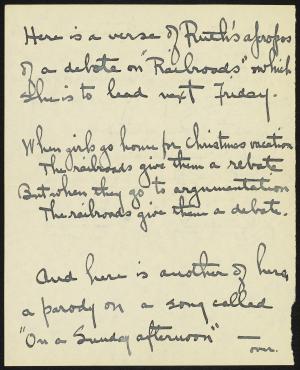 Here is a verse of Ruth's apropos
of a debate on "Railroads" on which
she is to lead next Friday.
When girls go home for Christmas vacation
The railroads give them a rebate
But when they go to argumentation
The railroads give them a debate.
And here is another of hers,
a parody on a song called
"On a Sunday afternoon" —
over.